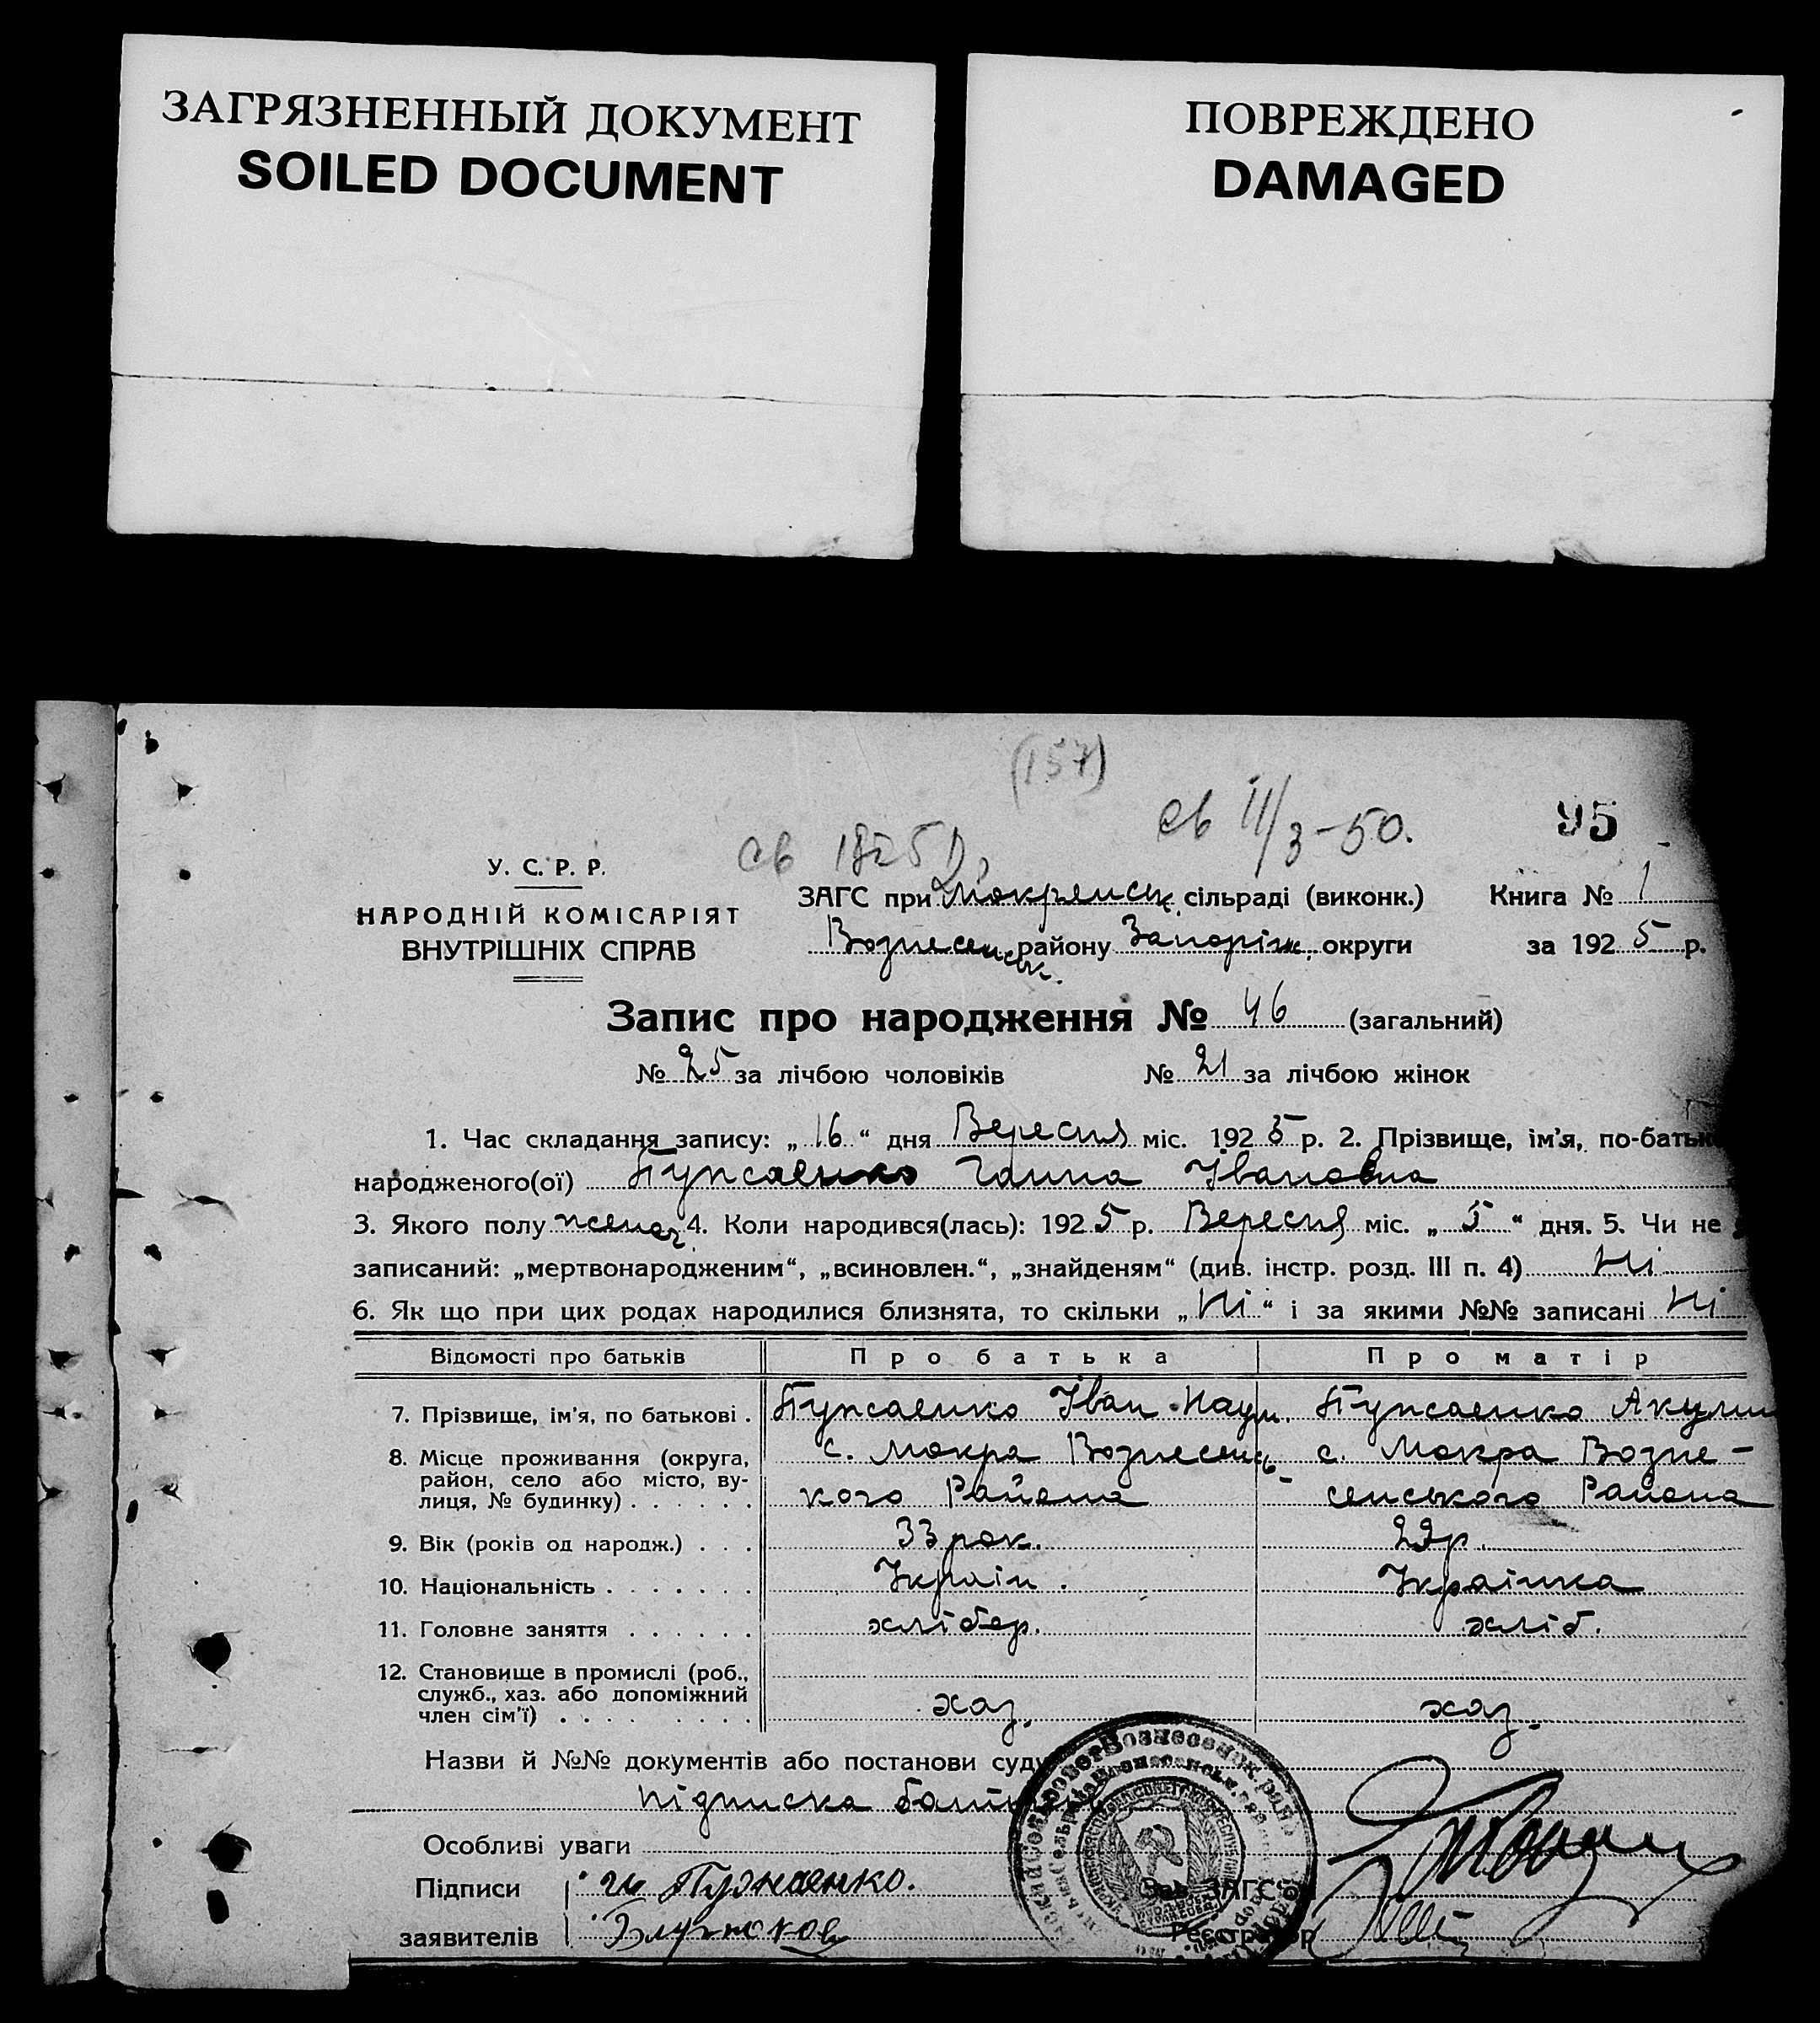 ЗАГРЯЗНЕННЫЙ ДОКУМЕНТ
SOILED DOCUMENT
ПОВРЕЖДЕНО
DAMAGED
(157)
св III/3-50.
95
св
У. С. Р. Р.
НАРОДНІЙ КОМІСАРІЯТ
ВНУТРІШНІХ СПРАВ
ЗАГС при Мокрянськ. сільраді (виконк.) Книга № 1
Вознесенськ. району Запоріж. округи за 1925 р.
Запис про народження № 46 (загальний)
№ 25 за лічбою чоловіків № 21 за лічбою жінок
1. Час складання запису: „16“ дня Вересня міс. 1925 р. 2. Прізвище, ім'я, по-батьк
народженого(ої) Пужаенко Ганна Івановна
3. Якого полу 4. Коли народився(лась): 1925 р. Вересня міс. „5“ дня. 5. Чи не
записаний: „мертвонародженим“, „всиновлен.“, „знайденям“ (див. інстр. розд. III п. 4) Ні
6. Як що при цих родах народилися близнята, то скільки „Ні“ і за якими №№ записані Ні
Відомості про батьків Про батька Про матір
7. Прізвище, ім'я, по батькові . Пужаенко Іван Наум. Пужаенко Акули
8. Місце проживання (округа, с. Мокра Вознесенсь- с. Мокра Возне-
район, село або місто, ву-
лиця, № будинку) . . . . . . кого Района сенського Района
9. Вік (років од народж.) . . . 33 рок. 29 р.
10. Національність . . . . . . . Украін. Украінка
11. Головне заняття . . . . . . хлібор. хліб.
12. Становище в промислі (роб.,
служб., хаз. або допоміжний
член сім'ї) . . . . . . . . хаз. хаз.
Назви й №№ документів або постанови суду
підписка
Особливі уваги
Підписи Пужаенко.
Зав. ЗАГС'ом
заявителів
Реєстратор